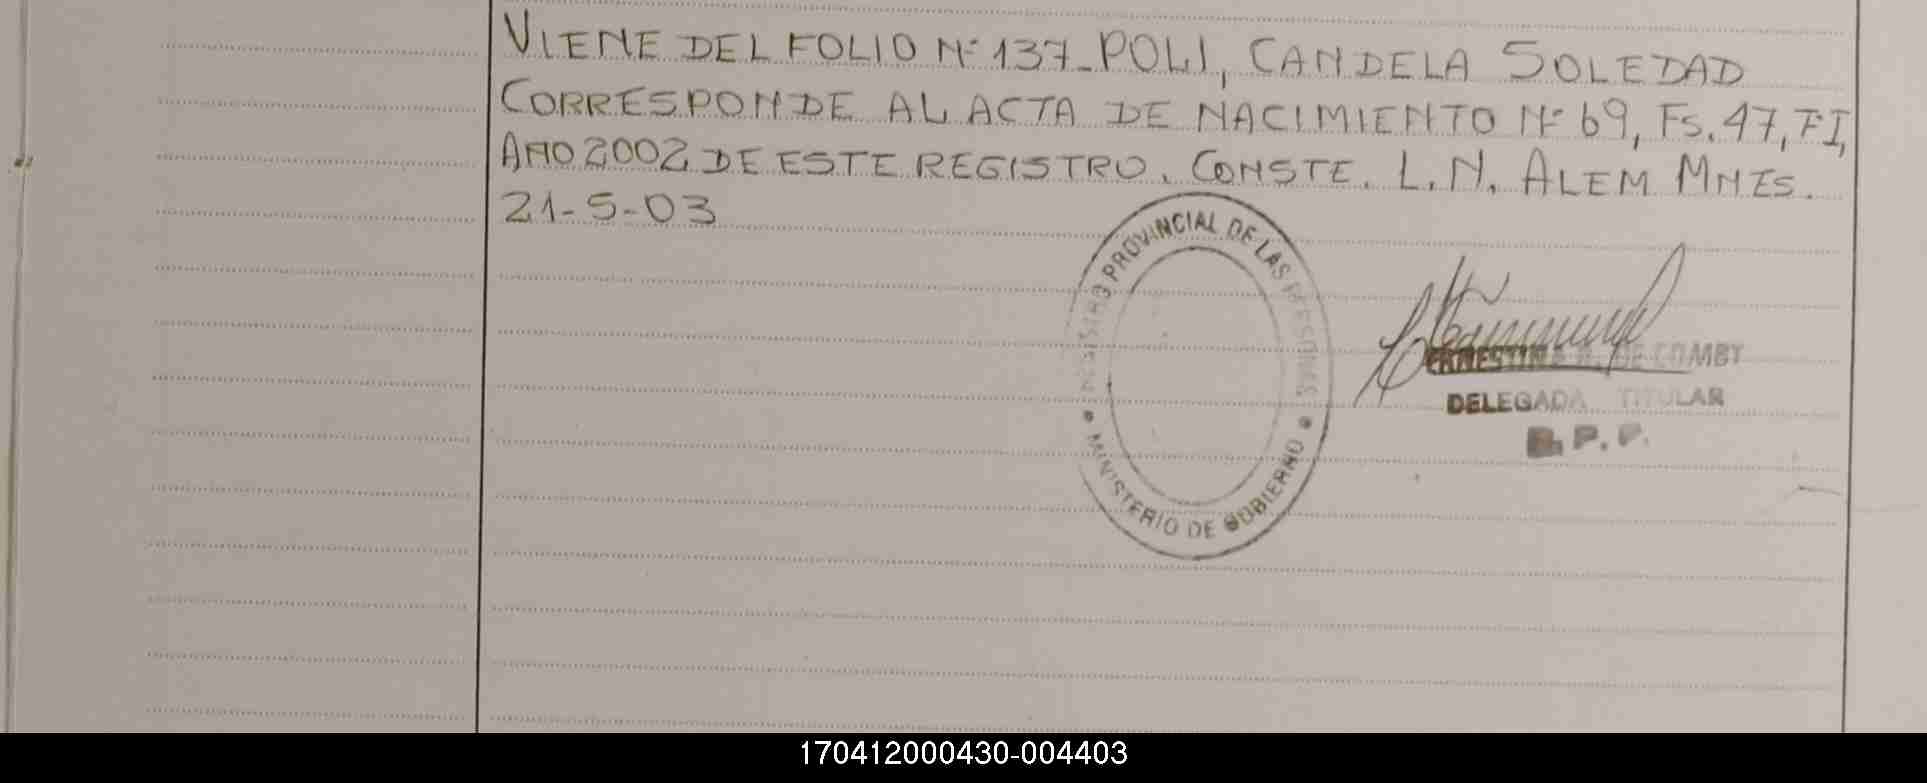 VIENE DEL FOLIO Nº 137_POLI, CANDELA SOLEDAD
CORRESPONDE AL ACTA DE NACIMIENTO Nº 69, Fs. 47, TºI,
AÑO 2002 DE ESTE REGISTRO. CONSTE. L. N. ALEM MNES.
21-5-03
REGISTRO PROVINCIAL DE LAS PERSONAS
• MINISTERIO DE GOBIERNO •
DE COMBY
DELEGADA TITULAR
R. P. P.
170412000430-004403